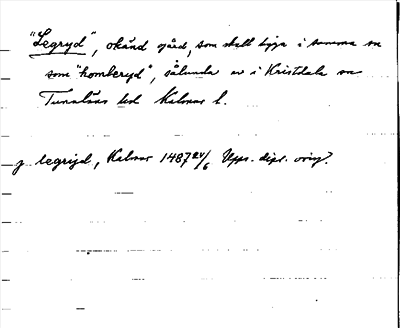 "Legryd", okänd gård, som skall ligga i samma sn
som "homberyd", således ev i Kristdala sn
Tunaläns hd Kalmar l.
j legrijd, Kalmar 1487 24/6 Upps. dipl. orig?